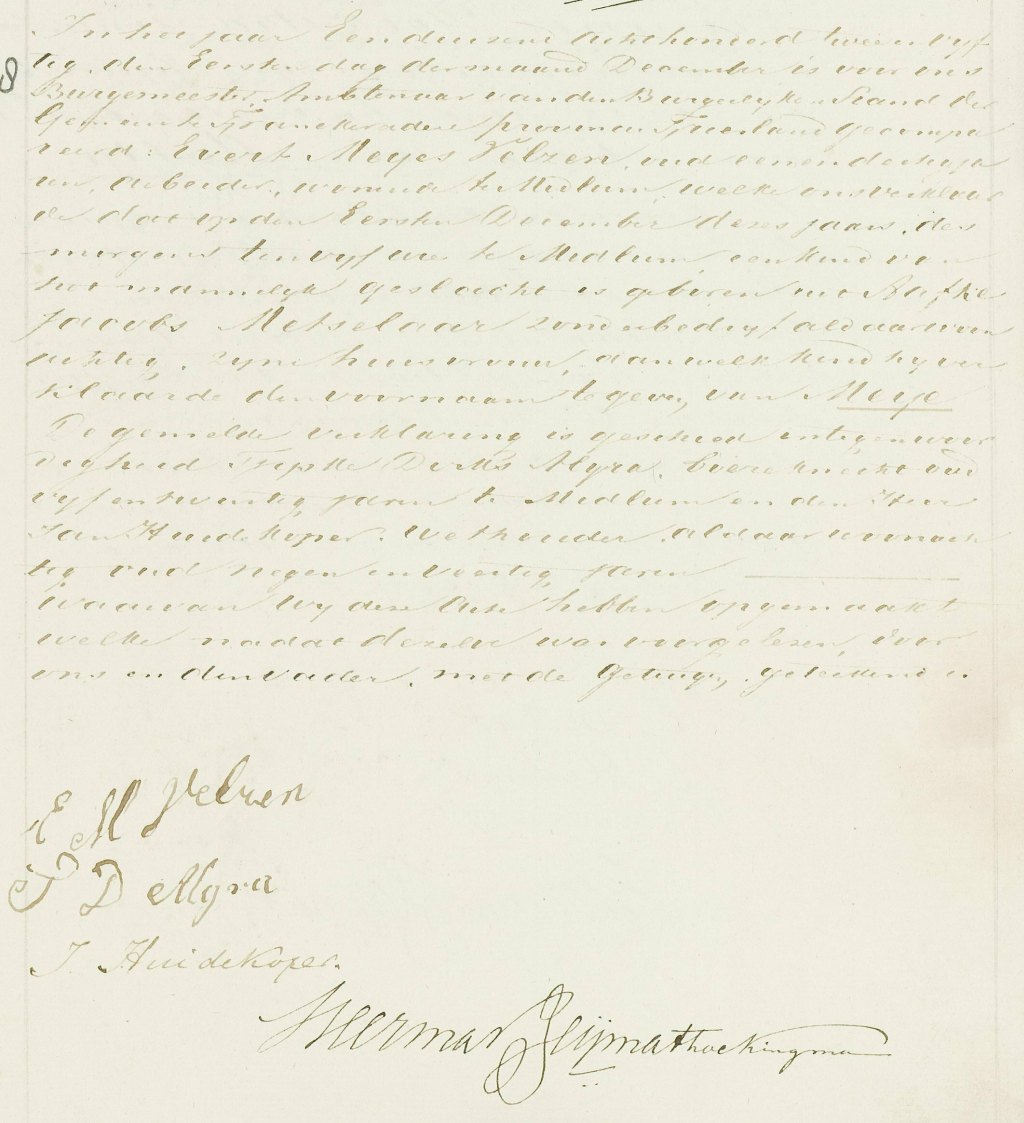 In het jaar Een duizend acht honderd twee en vyf
8
tig, den Eersten dag der maand December is voor ons
Burgemeester, Ambtenaar van den Burgerlyken Stand der
Gemeente Franekeradeel provincie Friesland gecompa
reerd: Evert Meyes Velzen, oud een en dertig ja
ren, arbeider, wonende te Midlum, welke ons verklaar
de dat op den Eersten December dezes jaars, des
morgens ten vyf ure te Midlum, een kind van
het mannelyk geslacht is geboren uit Aafke
Jacobs Metselaar zonder bedryf aldaar woon
achtig, zyne huisvrouw, aan welk kind hy ver
klaarde den voornaam te geven van Meye
De gemelde verklaring is geschied in tegenwoor
digheid Dirks Algra, boereknecht oud
vyf en twintig jaren te Midlum en den Heer
Jan Huidekoper, Wethouder, aldaar woonach
tig oud negen en veertig jaren
Waarvan wy deze Acte hebben opgemaakt
welke nadat dezelve was voorgelezen, door
ons en den vader, met de Getuigen, geteekend is
E M Velzen
T D Algra
J. Huidekoper.